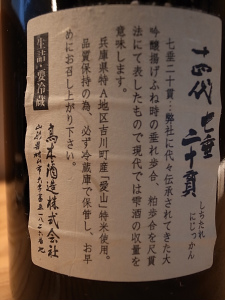 十四代 七垂二十貫
しちたれ
にじっかん
七垂二十貫…弊社に代々伝承されてきた大
吟醸揚げふね時の垂れ歩合、粕歩合を尺貫
法にて表したもので現代では雫酒の収量を
意味します。
兵庫県特A地区吉川町産「愛山」特米使用。
品質保持の為、必ず冷蔵庫で保管し、お早
めにお召し上がり下さい。
生詰・要冷蔵
高木酒造株式会社